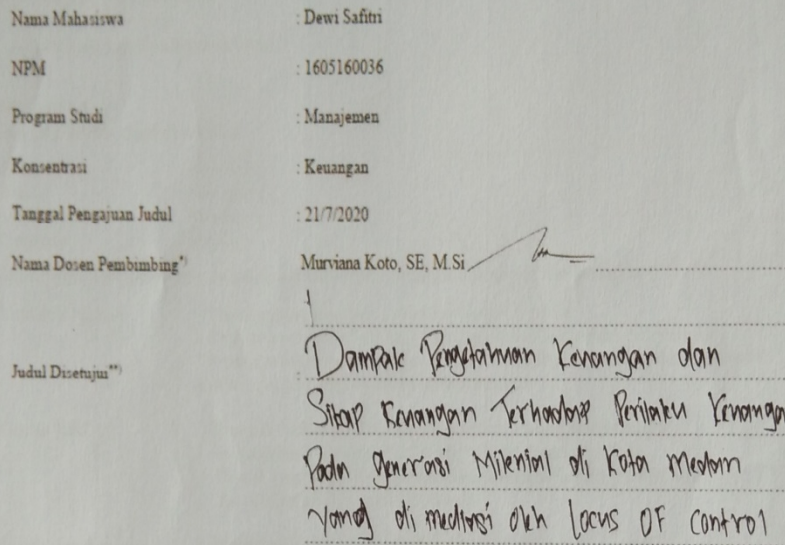 Nama Mahasiswa : Dewi Safitri
NPM : 1605160036
Program Studi : Manajemen
Konsentrasi : Keuangan
Tanggal Pengajuan Judul : 21/7/2020
Nama Dosen Pembimbing*) Murviana Koto, SE, M.Si
Judul Disetujui**) : Dampak Pengetahuan Keuangan dan
Sikap Keuangan Terhadap Perilaku Keuanga
Pada Generasi Milenial di Kota Medan
Yang di mediasi Oleh Locus OF Control